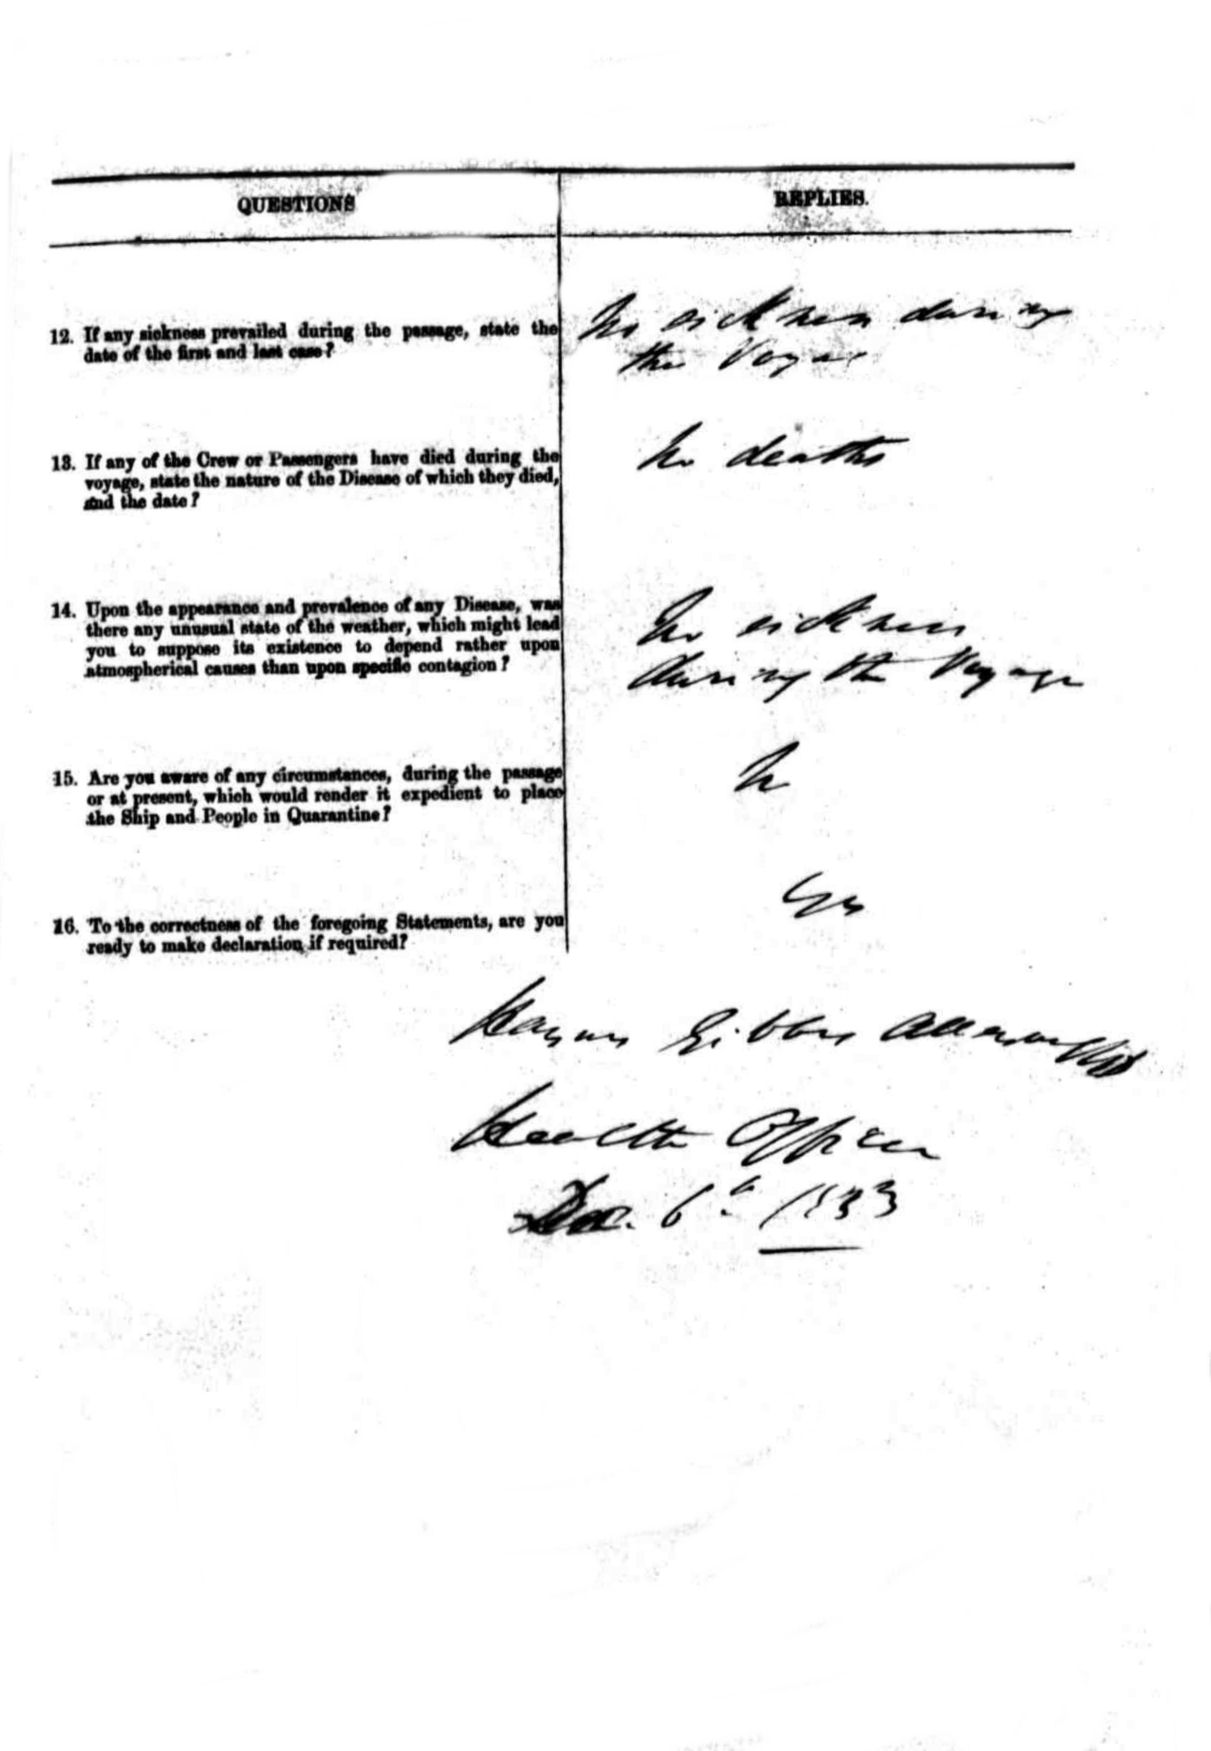 QUESTIONS
REPLIES.
12. If any sickness prevailed during the passage, state the
date of the first and last case?
No sickness during
the Voyage
13. If any of the Crew or Passengers have died during the
voyage, state the nature of the Disease of which they died,
and the date?
No deaths
14. Upon the appearance and prevalence of any Disease, was
there any unusual state of the weather, which might lead
you to suppose its existence to depend rather upon
atmospherical causes than upon specific contagion?
No sickness
during the Voyage
15. Are you aware of any circumstances, during the passage
or at present, which would render it expedient to place
the Ship and People in Quarantine?
No
16. To the correctness of the foregoing Statements, are you
ready to make declaration if required?
Yes
Haynes Gibbes Alleyne
Health Officer
Dec. 6th 1833